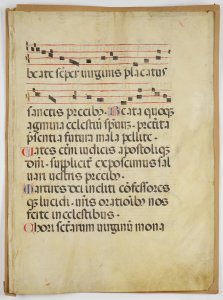 beate seper uirginis placatus
sanctis precibꝰ. Beata quoqꝫ
agmina celestiū spūū. preterita
psentia futura mala pellite.
Uates etni iudicis apostoliqꝫ
dni. supplicit exposcimus sal
uari uestris precibꝰ.
Martires dei incliti cōfessores
qꝫ lucidi. uris orationibꝰ nos
ferte in celestibus.
Chori sctarum uirginū mona